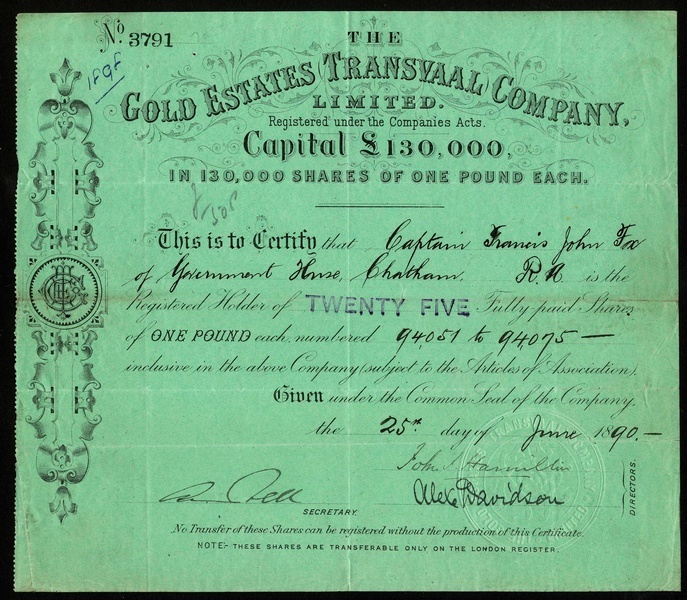 No. 3791
THE
GOLD ESTATES TRANSVAAL COMPANY,
LIMITED.
Registered under the Companies Acts.
Capital £130,000,
IN 130,000 SHARES OF ONE POUND EACH.
This is to Certify that Captain Francis John Fox
of Government House, Chatham. R.N. is the
Registered Holder of TWENTY FIVE Fully paid Shares
of ONE POUND each, numbered 94,051 to 94,075 —
inclusive in the above Company (subject to the Articles of Association).
Given under the Common Seal of the Company.
the 25th day of June 1890.—
John Hamilton
Alex Davidson
DIRECTORS.
SECRETARY.
No Transfer of these Shares can be registered without the production of this Certificate.
NOTE:- THESE SHARES ARE TRANSFERABLE ONLY ON THE LONDON REGISTER.